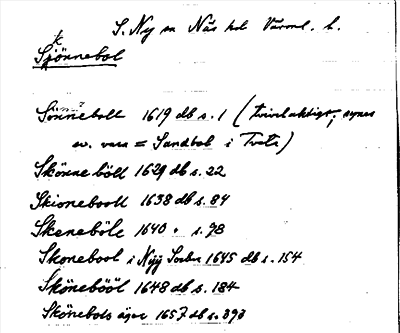 S. Ny sn Näs hd Värml. l.
Skönnebol
Sönneboll 1619 db s. 1 (tvivelaktigt, synes
ev. vara = Sandbol i Tveta)
Skönneböll 1629 db s. 22
Skionebooll 1638 db s. 84
Skeneböle 1640 " s. 98
Skonebool i Nyy Sochn 1645 db s. 154
Skönebööl 1648 db s. 184
Skönebols ägor 1657 db s. 393